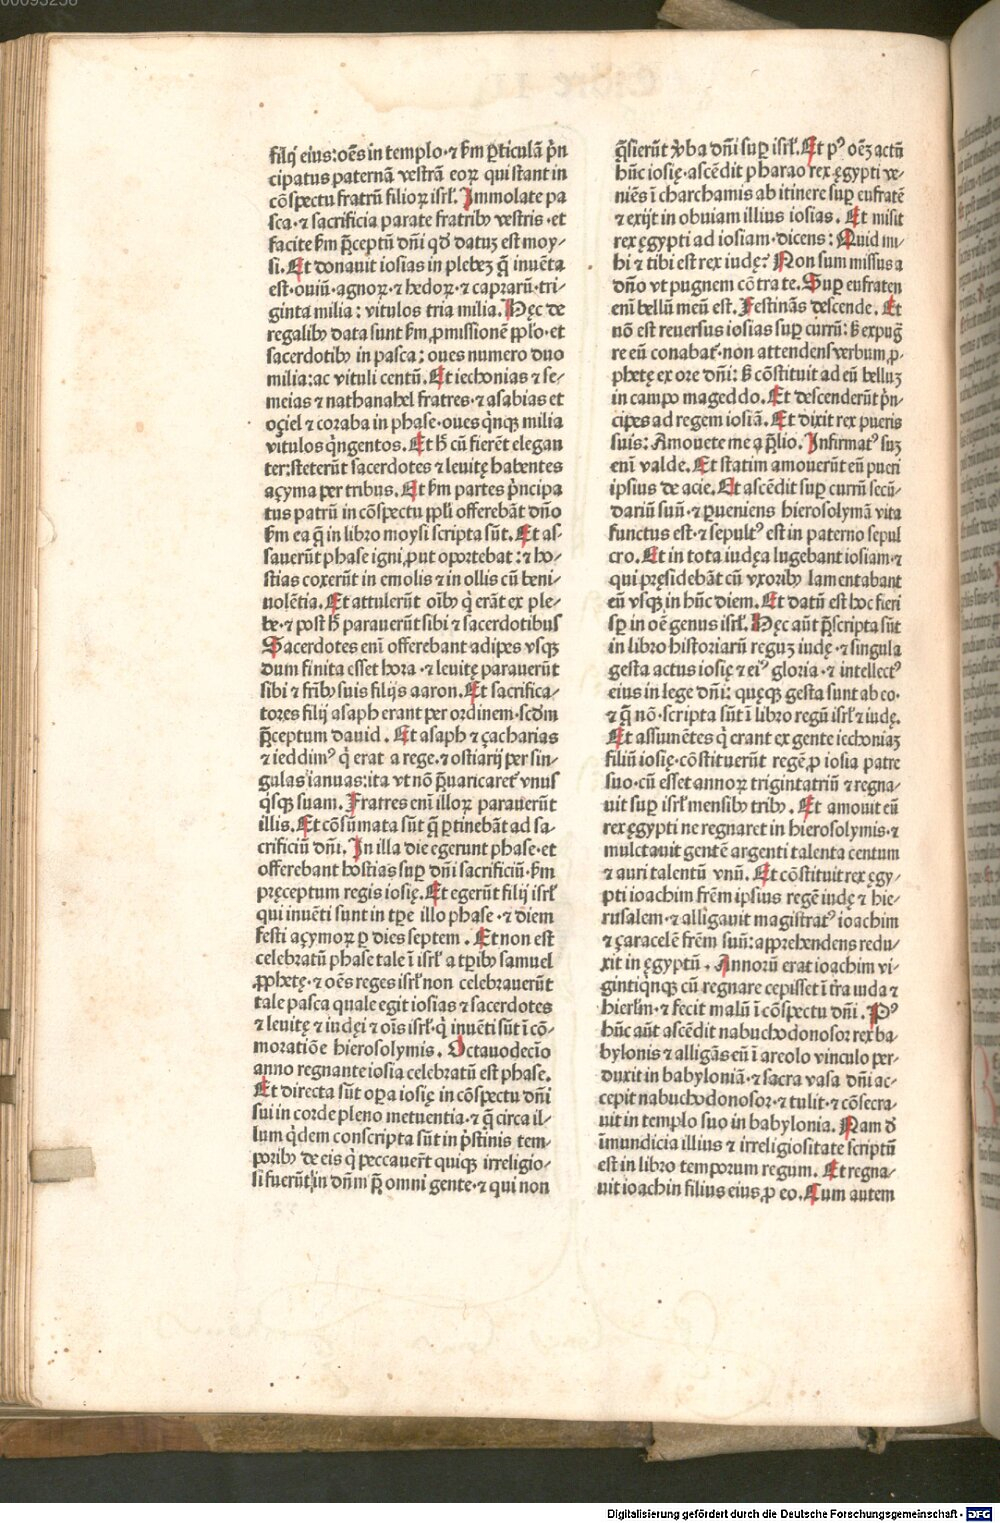 filij eius: oēs in templo · ⁊ s̄m ꝑticulā p̄n
cipatus paternā vestrā eoꝝ qui stant in
cōspectu fratrū filioꝝ isrł. Immolate pa
sca · ⁊ sacrificia parate fratribꝰ vestris · et
facite s̄m p̄ceptū dn̄i qd̄ datuꝫ est moy⸗
si. Et donauit iosias in plebeꝫ q̄ inuēta
est · ouiū · agnoꝝ · ⁊ hedoꝝ · ⁊ caprarū · tri⸗
ginta milia: vitulos tria milia. Hęc de
regalibꝰ data sunt s̄m ꝓmissionē pp̄lo · et
sacerdotibꝰ in pasca: oues numero duo
milia: ac vituli centū. Et iechonias ⁊ se⸗
meias ⁊ nathanahel fratres · ⁊ asabias et
oçiel ⁊ coraba in phase · oues q̇nqꝫ milia
vitulos q̇ngentos. Et h̄ cū fierēt elegan
ter: steterūt sacerdotes ⁊ leuitę habentes
açyma per tribus. Et s̄m partes p̄ncipa
tus patrū in cōspectu pp̄li offerebāt dn̄o
s̄m ea q̄ in libro moysi scripta sūt. Et as⸗
sauerūt phase igni ꝓut oportebat: ⁊ ho⸗
stias coxerūt in emolis ⁊ in ollis cū beni⸗
uolētia. Et attulerūt oībꝰ q̇ erāt ex ple⸗
be · ⁊ post h̄ parauerūt sibi ⁊ sacerdotibus
Sacerdotes enī offerebant adipes vsqꝫ
dum finita esset hora · ⁊ leuitę parauerūt
sibi ⁊ fr̄ibꝰ suis filijs aaron. Et sacrifica⸗
tores filij asaph erant per ordinem · scd̄m
p̄ceptum dauid. Et asaph ⁊ çacharias
⁊ ieddimꝰ q̇ erat a rege · ⁊ ostiarij per sin⸗
gulas ianuas: ita vt nō p̄uaricaret᷑ vnus
q̇sqꝫ suam. Fratres enī illoꝝ parauerūt
illis. Et cōsūmata sūt q̄ ꝑtinebāt ad sa⸗
crificiū dn̄i. In illa die egerunt phase · et
offerebant hostias suꝑ dn̄i sacrificiū · s̄m
pręceptum regis iosię. Et egerūt filij isrł
qui inuēti sunt in tp̄e illo phase · ⁊ diem
festi açymoꝝ ꝑ dies septem. Et non est
celebratū phase tale ī isrł a tp̄ibꝰ samuel
ꝓphetę · ⁊ oēs reges isrł non celebrauerūt
tale pasca quale egit iosias ⁊ sacerdotes
⁊ leuitę ⁊ iudęi ⁊ oīs isrł · q̇ inuēti sūt ī cō⸗
moratiōe hierosolymis. Octauodecīo
anno regnante iosia celebratū est phase.
Et directa sūt oꝑa iosię in cōspectu dn̄i
sui in corde pleno metuentia · ⁊ q̄ circa il⸗
lum q̇dem conscripta sūt in p̄stinis tem⸗
poribꝰ de eis q̇ peccauert̄ quiqꝫ irreligio⸗
si fuerūt in dn̄m p̄ omni gente · ⁊ qui non
q̄sierūt v̄ba dn̄i suꝑ isrł. Et pꝰ oēꝫ actū
hūc iosię · ascēdit pharao rex ęgypti ve⸗
niēs ī charchamis ab itinere suꝑ eufratē
⁊ exijt in obuiam illius iosias. Et misit
rex ęgypti ad iosiam · dicens: Quid mi⸗
hi ⁊ tibi est rex iudę? Non sum missus a
dn̄o vt pugnem cōtra te. Suꝑ eufraten
enī bellū meū est. Festinās descende. Et
nō est reuersus iosias suꝑ currū: s̄ expuḡ
re eū conabat᷑ · non attendens verbum ꝓ⸗
phetę ex ore dn̄i: s̄ cōstituit ad eū belluꝫ
in campo mageddo. Et descenderūt p̄n⸗
cipes ad regem iosiā. Et dixit rex pueris
suis: Amouete me a p̄lio. Infirmatꝰ suꝫ
enī valde. Et statim amouerūt eū pueri
ipsius de acie. Et ascēdit suꝑ currū secū⸗
dariū suū · ⁊ ꝑueniens hierosolymā vita
functus est · ⁊ sepultꝰ est in paterno sepul
cro. Et in tota iudęa lugebant iosiam · ⁊
qui pręsidebāt cū vxoribꝰ lamentabant
eū vsqꝫ in hūc diem. Et datū est hoc fieri
sꝑ in oē genus isrł. Hęc aūt p̄scripta sūt
in libro historiarū reguꝫ iudę · ⁊ singula
gesta actus iosię ⁊ eiꝰ gloria · ⁊ intellectꝰ
eius in lege dn̄i: quęqꝫ gesta sunt ab eo ·
⁊ q̄ nō scripta sūt ī libro regū isrł ⁊ iudę.
Et assumētes q̇ erant ex gente iechoniaꝫ
filiū iosię · cōstituerūt regē ꝓ iosia patre
suo · cū esset annoꝝ trigintatriū ⁊ regna⸗
uit suꝑ isrł mensibꝰ tribꝰ. Et amouit eū
rex ęgypti ne regnaret in hierosolymis · ⁊
mulctauit gentē argenti talenta centum
⁊ auri talentū vnū. Et cōstituit rex ęgy⸗
pti ioachim fr̄em ipsius regē iudę ⁊ hie⸗
rusalem · ⁊ alligauit magistratꝰ ioachim
⁊ çaracelē fr̄em suū: apprehendens redu⸗
xit in ęgyptū. Annorū erat ioachim vi⸗
gintiq̇nqꝫ cū regnare cepisset ī t̄ra iuda ⁊
hierlm̄ · ⁊ fecit malū ī cōspectu dn̄i. Pꝰ
hūc aūt ascēdit nabuchodonosor rex ba⸗
bylonis ⁊ alligās eū ī areolo vinculo per⸗
duxit in babyloniā · ⁊ sacra vasa dn̄i ac⸗
cepit nabuchodonosor · ⁊ tulit · ⁊ cōsecra⸗
uit in templo suo in babylonia. Nam d̄
īmundicia illius ⁊ irreligiositate scriptū
est in libro temporum regum. Et regna⸗
uit ioachin filius eius ꝓ eo. Cum autem
Digitalisierung gefördert durch die Deutsche Forschungsgemeinschaft - DFG